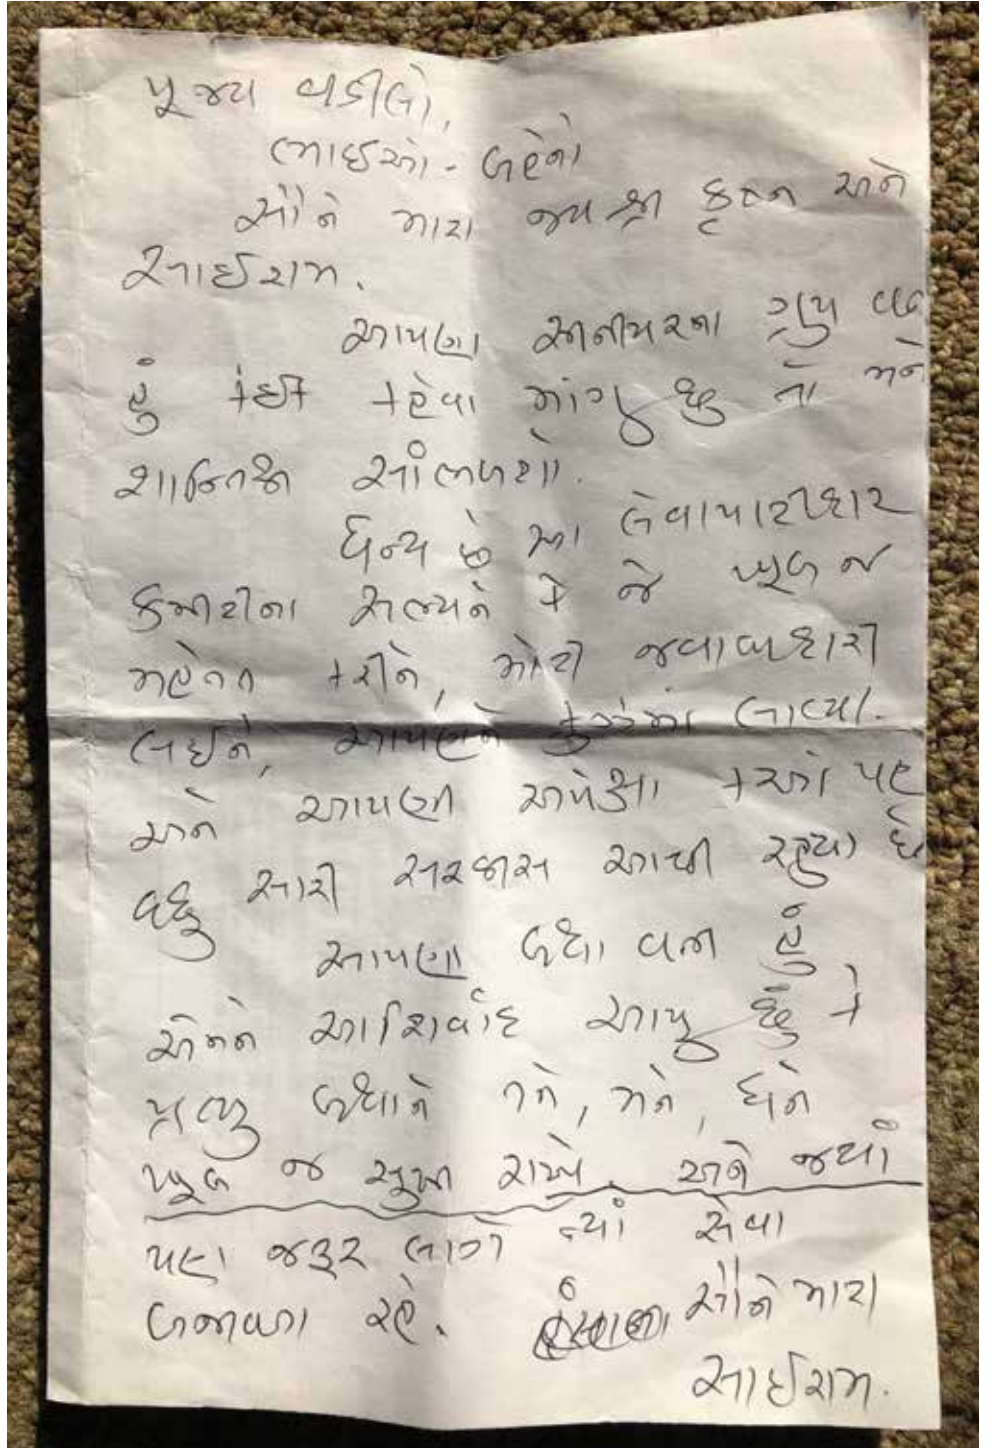 પૂજ્ય વડીલો,
ભાઈઓ - બહેનો
સૌને મારા જય શ્રી કૃષ્ન અને
સાઈરામ.
આપણા સીનીયરના ગ્રુપ વતી
હું કંઈક કહેવા માંગુ છુ તો મને
શાન્તિથી સાંભળશો.
ધન્ય છે આ લેવાપાટીદાર
કમીટીના સભ્યને કે જે ખૂબ જ
મહેનત કરીને, મોટી જવાબદારી
લઈને, આપણને ક્રુઝમાં લાવ્યા.
અને આપણી અપેક્ષા કરતા પણ
વધુ સારી સરવીસ આપી રહ્યા છે
આપણા બધા વતી હું
એમને આશિર્વાદ આપુ છું કે
પ્રભુ બધાને તને, મને, ધને
ખૂબ જ સુખી રાખે. અને જયાં
પણ જરૂર લાગે ત્યાં સેવા
બજાવતા રહે. સૌને મારા
સાઈરામ.